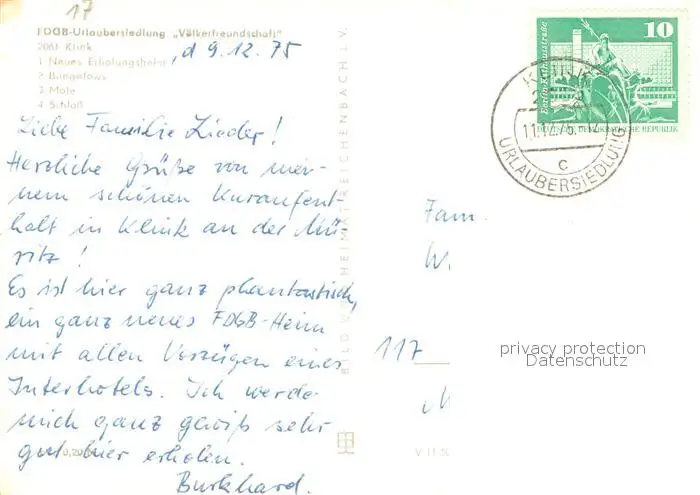 17
FDGB-Urlaubersiedlung „Völkerfreundschaft"
2061 Klink
, d 9.12.75
1 Neues Erholungsheim
2 Bungalows
3 Mole
4 Schloß
Liebe Familie Lieder!
Herzliche Grüße von mei-
nem schönen Kuraufent-
halt in Klink an der Mü-
ritz!
Es ist hier ganz phantastisch,
ein ganz neues FDGB-Heim
mit allen Vorzügen eines
Interhotels. Ich werde
mich ganz gewiß sehr
gut hier erholen.
Burkhard.
0,20
BILD UND HEIMAT REICHENBACH I. V.
V 11 50
Berlin-Rathausstraße
10
DEUTSCHE DEMOKRATISCHE REPUBLIK
KLINK
11.12.75
c
URLAUBERSIEDLUNG
Fam.
W.
117
privacy protection
Datenschutz